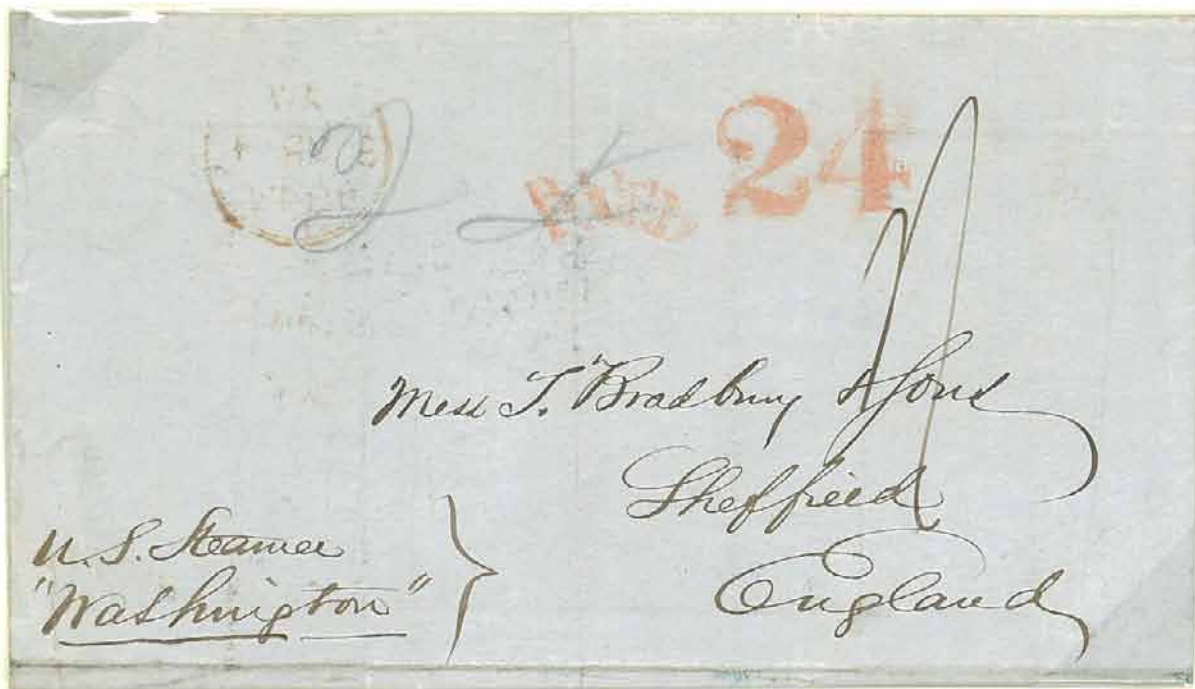 PAID 24
Mess T. Bradbury & Sons
Sheffield
England
U.S. Steamer
"Washington"